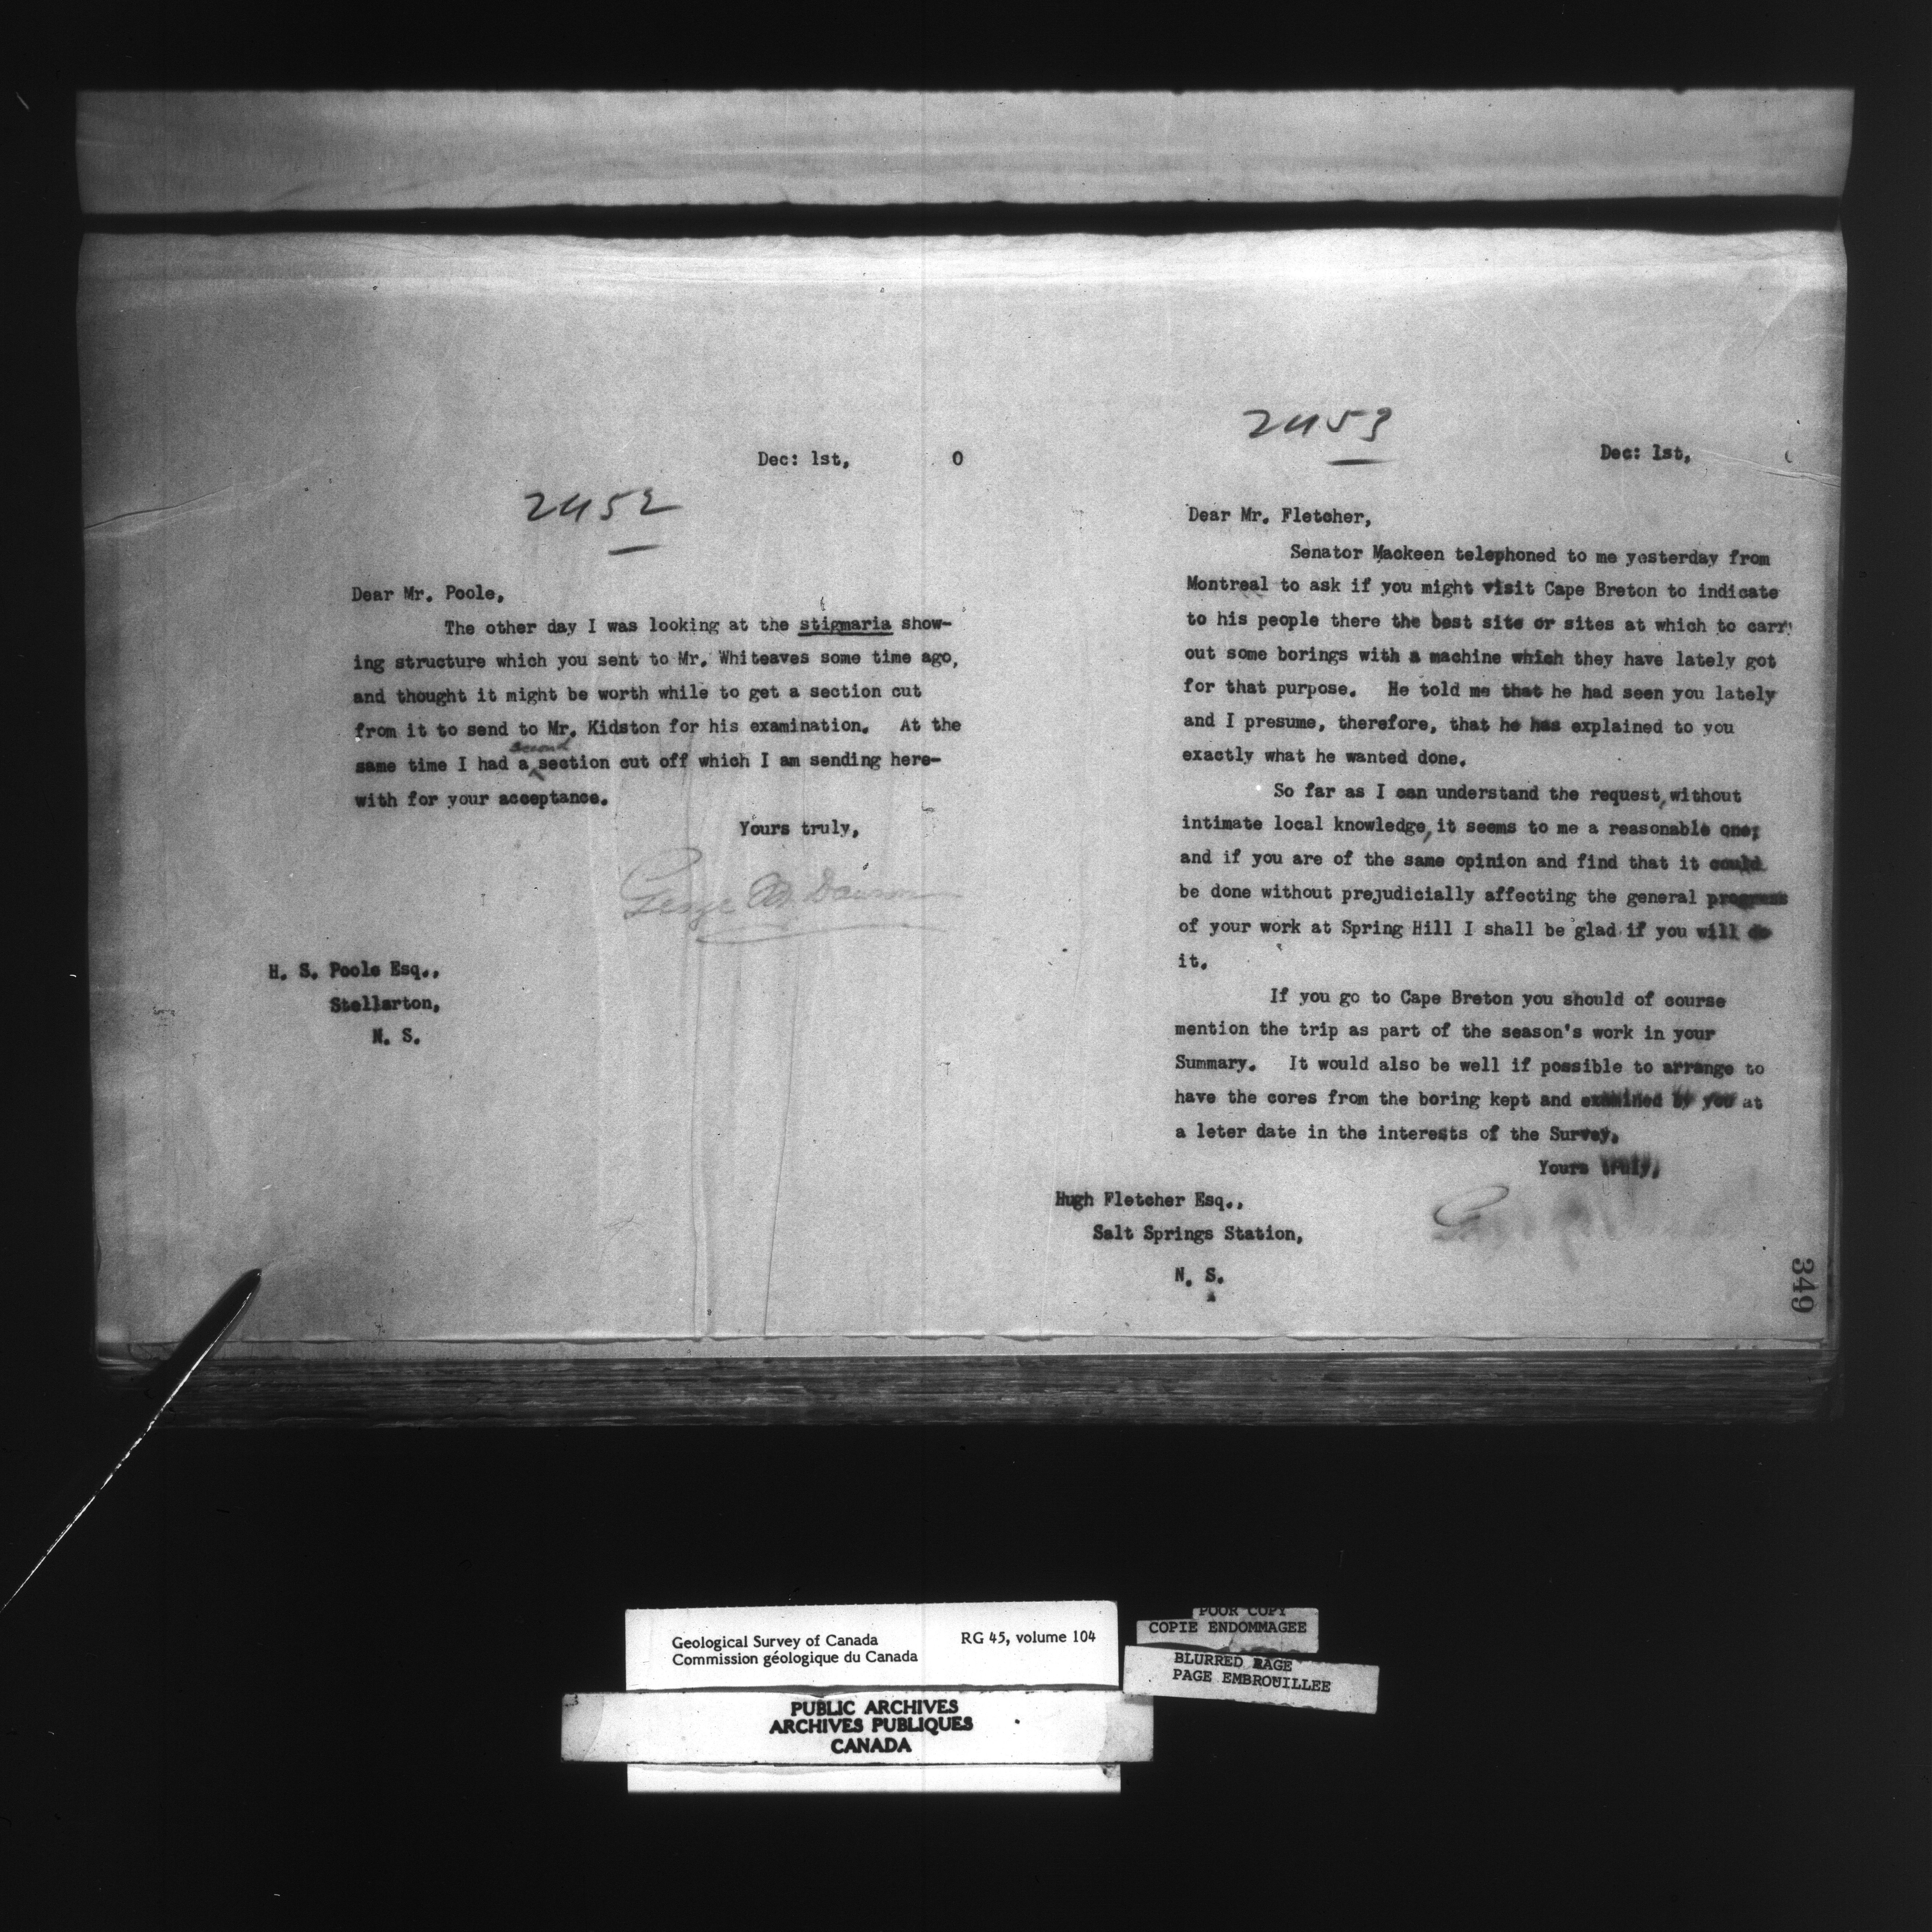 Dec: 1st, 0
2452
Dear Mr. Poole,
The other day I was looking at the stigmaria show-
ing structure which you sent to Mr. Whiteaves some time ago,
and thought it might be worth while to get a section cut
from it to send to Mr. Kidston for his examination. At the
second
same time I had a section cut off which I am sending here-
with for your acceptance.
Yours truly,
George M. Dawson
H. S. Poole Esq.,
Stellarton,
N. S.
2453
Dec: 1st,
Dear Mr. Fletcher,
Senator Mackeen telephoned to me yesterday from
Montreal to ask if you might visit Cape Breton to indicate
to his people there the best site or sites at which to carry
out some borings with a machine which they have lately got
for that purpose. He told me that he had seen you lately
and I presume, therefore, that he has explained to you
exactly what he wanted done.
So far as I can understand the request, without
intimate local knowledge, it seems to me a reasonable one;
and if you are of the same opinion and find that it could
be done without prejudicially affecting the general progress
of your work at Spring Hill I shall be glad if you will do
it.
If you go to Cape Breton you should of course
mention the trip as part of the season's work in your
Summary. It would also be well if possible to arrange to
have the cores from the boring kept and examined by you at
a leter date in the interests of the Survey.
Yours truly,
Hugh Fletcher Esq.,
Salt Springs Station,
N. S.
349
Geological Survey of Canada RG 45, volume 104
Commission géologique du Canada
PUBLIC ARCHIVES
ARCHIVES PUBLIQUES
CANADA
POOR COPY
COPIE ENDOMMAGEE
BLURRED PAGE
PAGE EMBROUILLEE